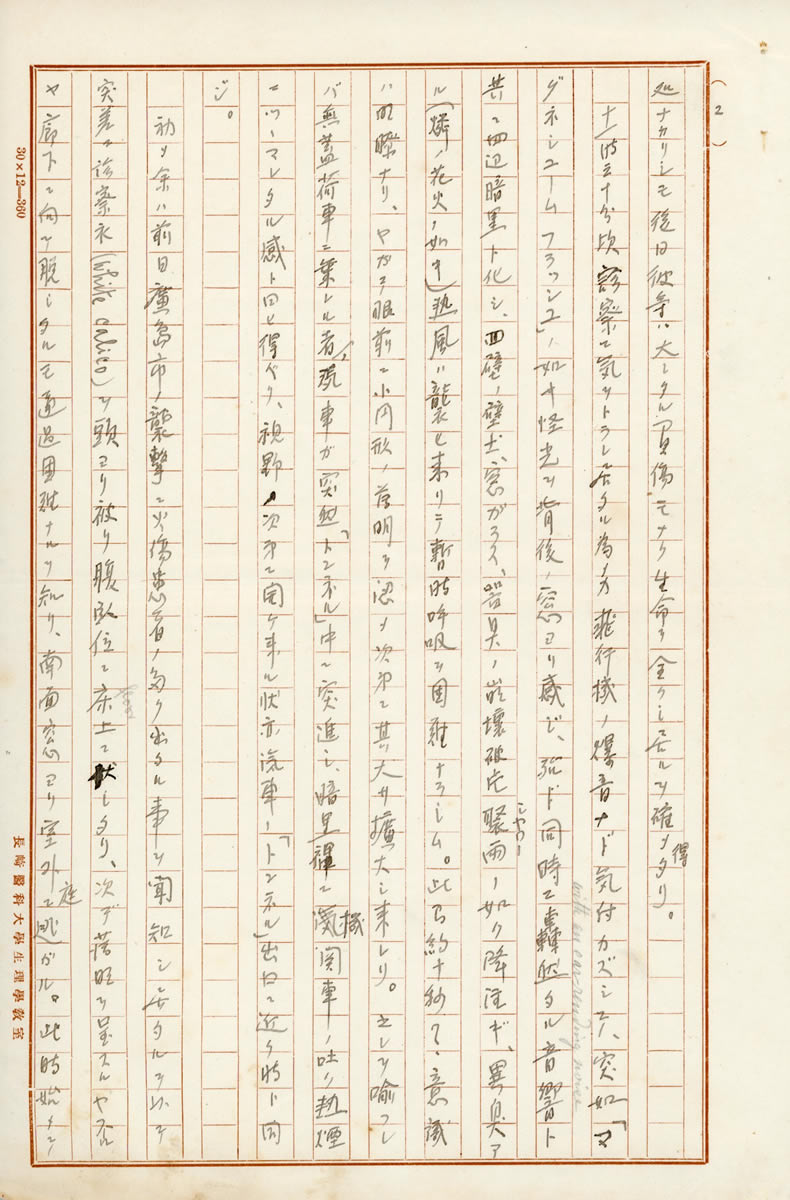 (2)
処ナカリシモ後日彼等ハ大シタル負傷モナク生命ヲ全クシ居ルヲ確メ得タリ。
十一時三十分頃診察ニ気ヲトラレ居タル為メカ飛行機ノ爆音ナド気付カズシテ、突如「マ
グネシユーム フラッシユ」ノ如キ怪光ヲ背後ノ窓ヨリ感ジ、殆ド同時ニ轟然タル音響ト
with an ear-rending noise
共ニ四辺暗黒ト化シ、四壁ノ壁土、窓ガラス、器具ノ崩壊破片驟雨ノ如ク降注ギ、異臭ア
シヤワー
ル(燐ノ花火ノ如キ)熱風ハ襲ヒ来リテ暫時呼吸ヲ困難ナラシム。此ノ約十秒間、意識
ハ明瞭ナリ、ヤガテ眼前ニ小円形ノ薄明ヲ認メ次第ニ其大サ擴大シ来レリ。之レヲ喩フレ
バ無蓋荷車ニ乗レル者ノ、列車ガ突然「トンネル」中ニ突進シ、暗黒裡ニ機関車ノ吐ク熱煙
ニツヽマレタル感ト曰ヒ得ベク、視野ノ次第ニ開ケ来ル状亦汽車ノ「トンネル」出口ニ近ク時ト同
ジ。
初メ余ハ前日廣島市ノ襲撃ニ火傷患者ノ多ク出タル事ヲ聞知シ居タルヲ以テ
突差ニ診察衣(White calico)ヲ頭ヨリ被リ腹臥位ニ床上ニ伏シタリ、次デ落旺ヲ呈スルヤ否
floor
ヤ廊下ニ向ッテ脱シタルモ通過困難ナルヲ知リ、南面窓ヨリ室外庭ニ逃ガル。此時始メテ
30×12—360
長崎醫科大學生理學教室